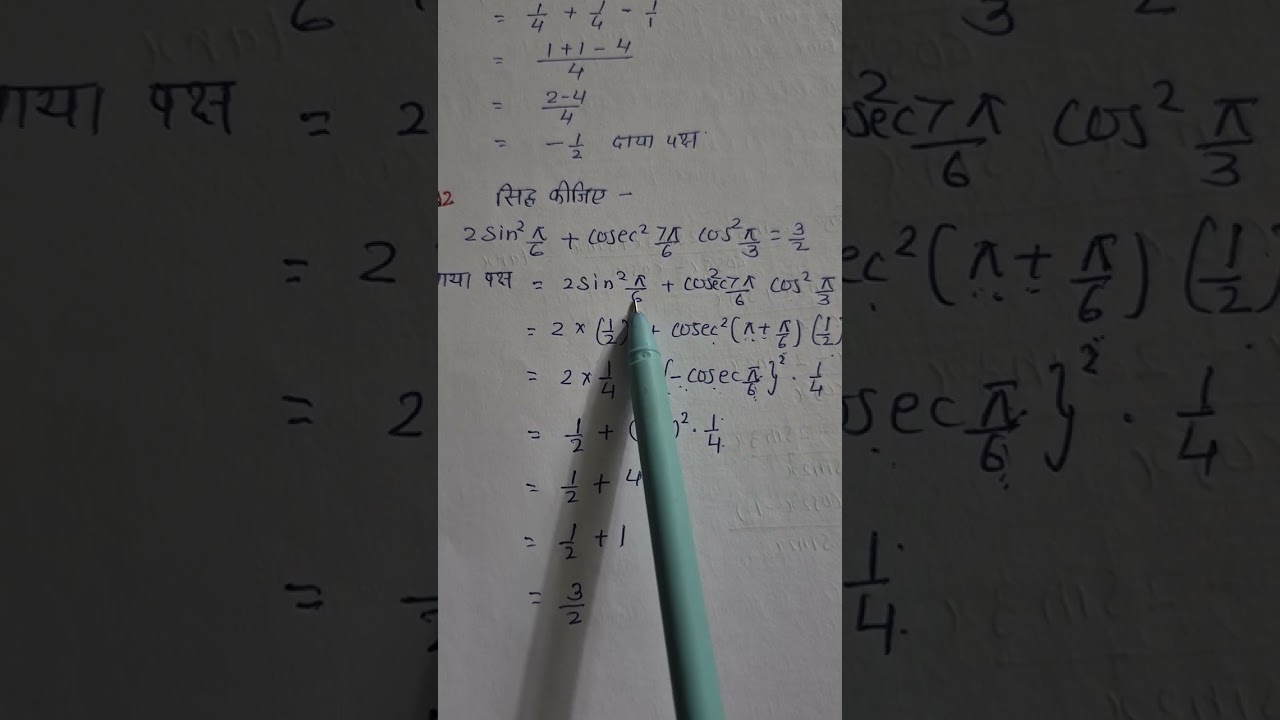 = 1/4 + 1/4 - 1/1
= (1+1-4)/4
= (2-4)/4
= -1/2 दाया पक्ष
2 सिद्ध कीजिए -
2sin² π/6 + cosec² 7π/6 cos² π/3 = 3/2
पक्ष = 2sin² π/6 + cosec² 7π/6 cos² π/3
= 2 × (1/2) + cosec² (π + π/6) (1/2)
= 2 × 1/4 {-cosec π/6}² · 1/4
= 1/2 + ( )² · 1/4
= 1/2 + 4
= 1/2 + 1
= 3/2